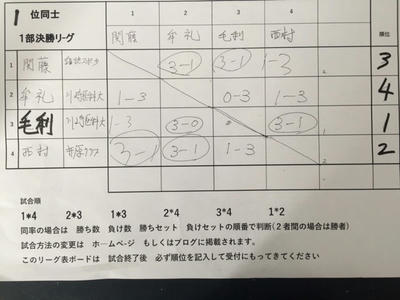 1 位同士
1部決勝リーグ
1 2 3 4
関藤 牟礼 毛利 西村 順位
1 関藤 3-1 3-1 1-3 3
2 牟礼 川崎医科大 1-3 0-3 1-3 4
3 毛利 川崎医科大 1-3 3-0 3-1 1
4 西村 3-1 3-1 1-3 2
試合順
1*4 2*3 1*3 2*4 3*4 1*2
同率の場合は 勝ち数 負け数 勝ちセット 負けセットの順番で判断(2者間の場合は勝者)
試合方法の変更は ホームページ もしくはブログに掲載されます。
このリーグ表ボードは 試合終了後 必ず順位を記入して受付にもってきてください